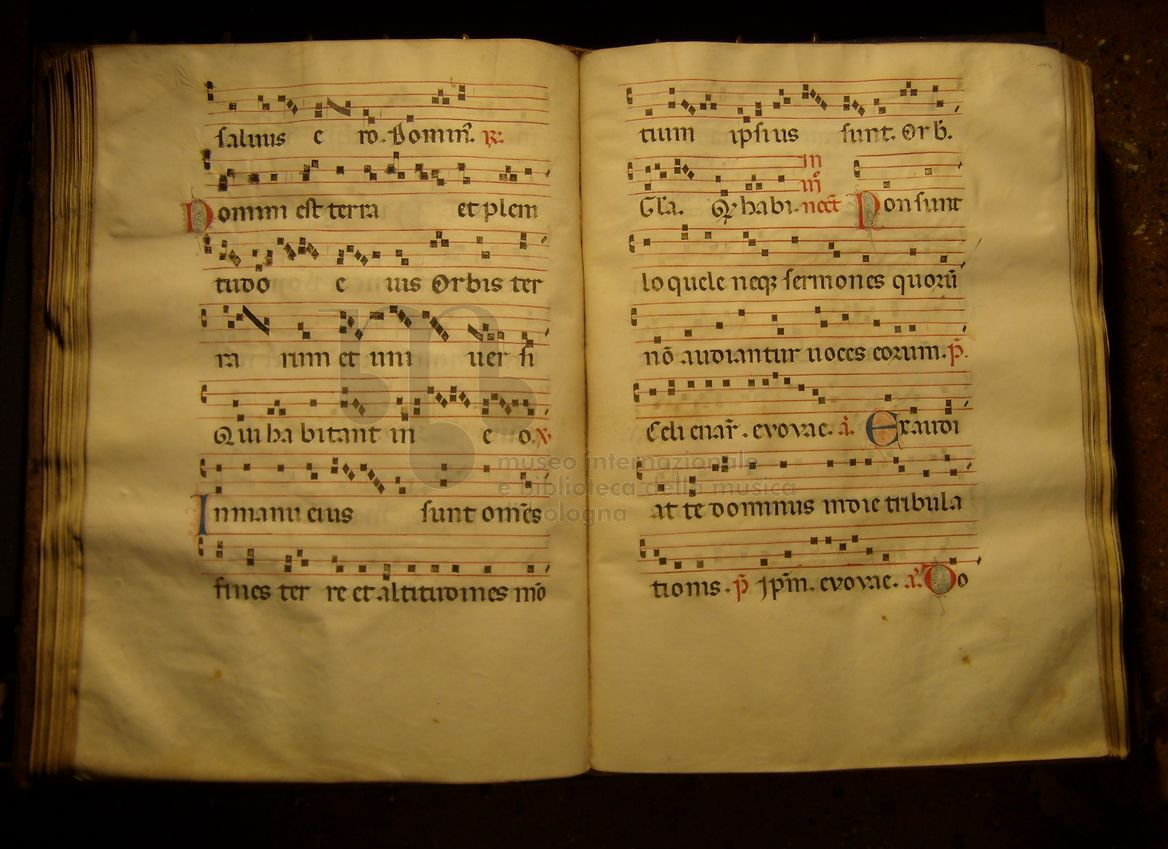 salvus e ro. Domine. ℟.
Domini est terra et pleni
tudo e ius Orbis ter
ra rum et uni uer si
Qui ha bitant in e o. ℣.
In manu eius sunt om̄es
fines ter re et altitudines mō
tium ipsius sunt. Or b̄.
in
Gl̄a. Q̄. habi. noct̄ Non sunt
loquele neq; sermones quorū
nō audiantur uoces eorum. p̄.
Celi enar̄. evovae. a̅. Exaudi
at te dominus in die tribula
tionis. p̄ Ip̄m. evovae. a̅. Do
museo internazionale
e biblioteca della musica
bologna